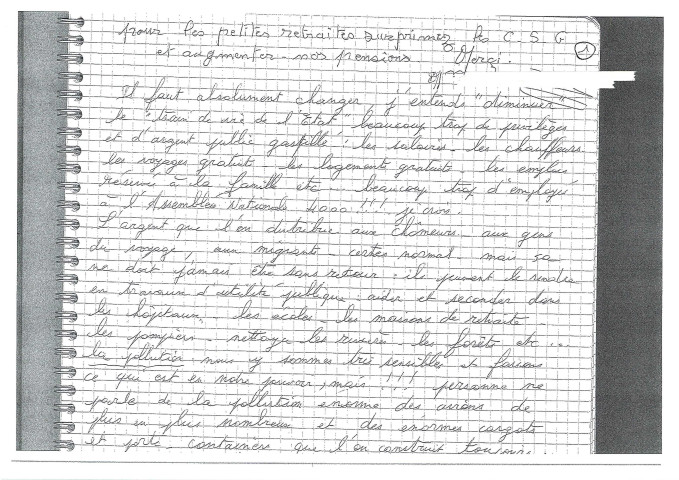 pour les petites retraites supprimez la C.S.G
1
et augmenter nos pensions Merci.
Il faut absolument changer, j'entends "diminuer"
le "train de vie de l'État" beaucoup trop de privilèges
et d'argent public gaspillé : les salaires - les chauffeurs
les voyages gratuits - les logements gratuits - les emplois
réservés à la famille etc - beaucoup trop d'employés
à l'Assemblée Nationale !!! je crois.
L'argent que l'on distribue aux chômeurs - aux gens
du voyage, aux migrants - certes normal - mais ça
ne doit jamais être sans retour : ils peuvent le rendre
en travaux d'utilité publique - aider et seconder dans
les hôpitaux - les écoles - les maisons de retraite
les pompiers - nettoyer les rivières - les forêts etc ...
la pollution nous y sommes très sensibles et faisons
ce qui est en notre pouvoir, mais !!! personne ne
parle de la pollution énorme des avions de
plus en plus nombreux et des énormes cargots
et porte-containers que l'on construit toujours.